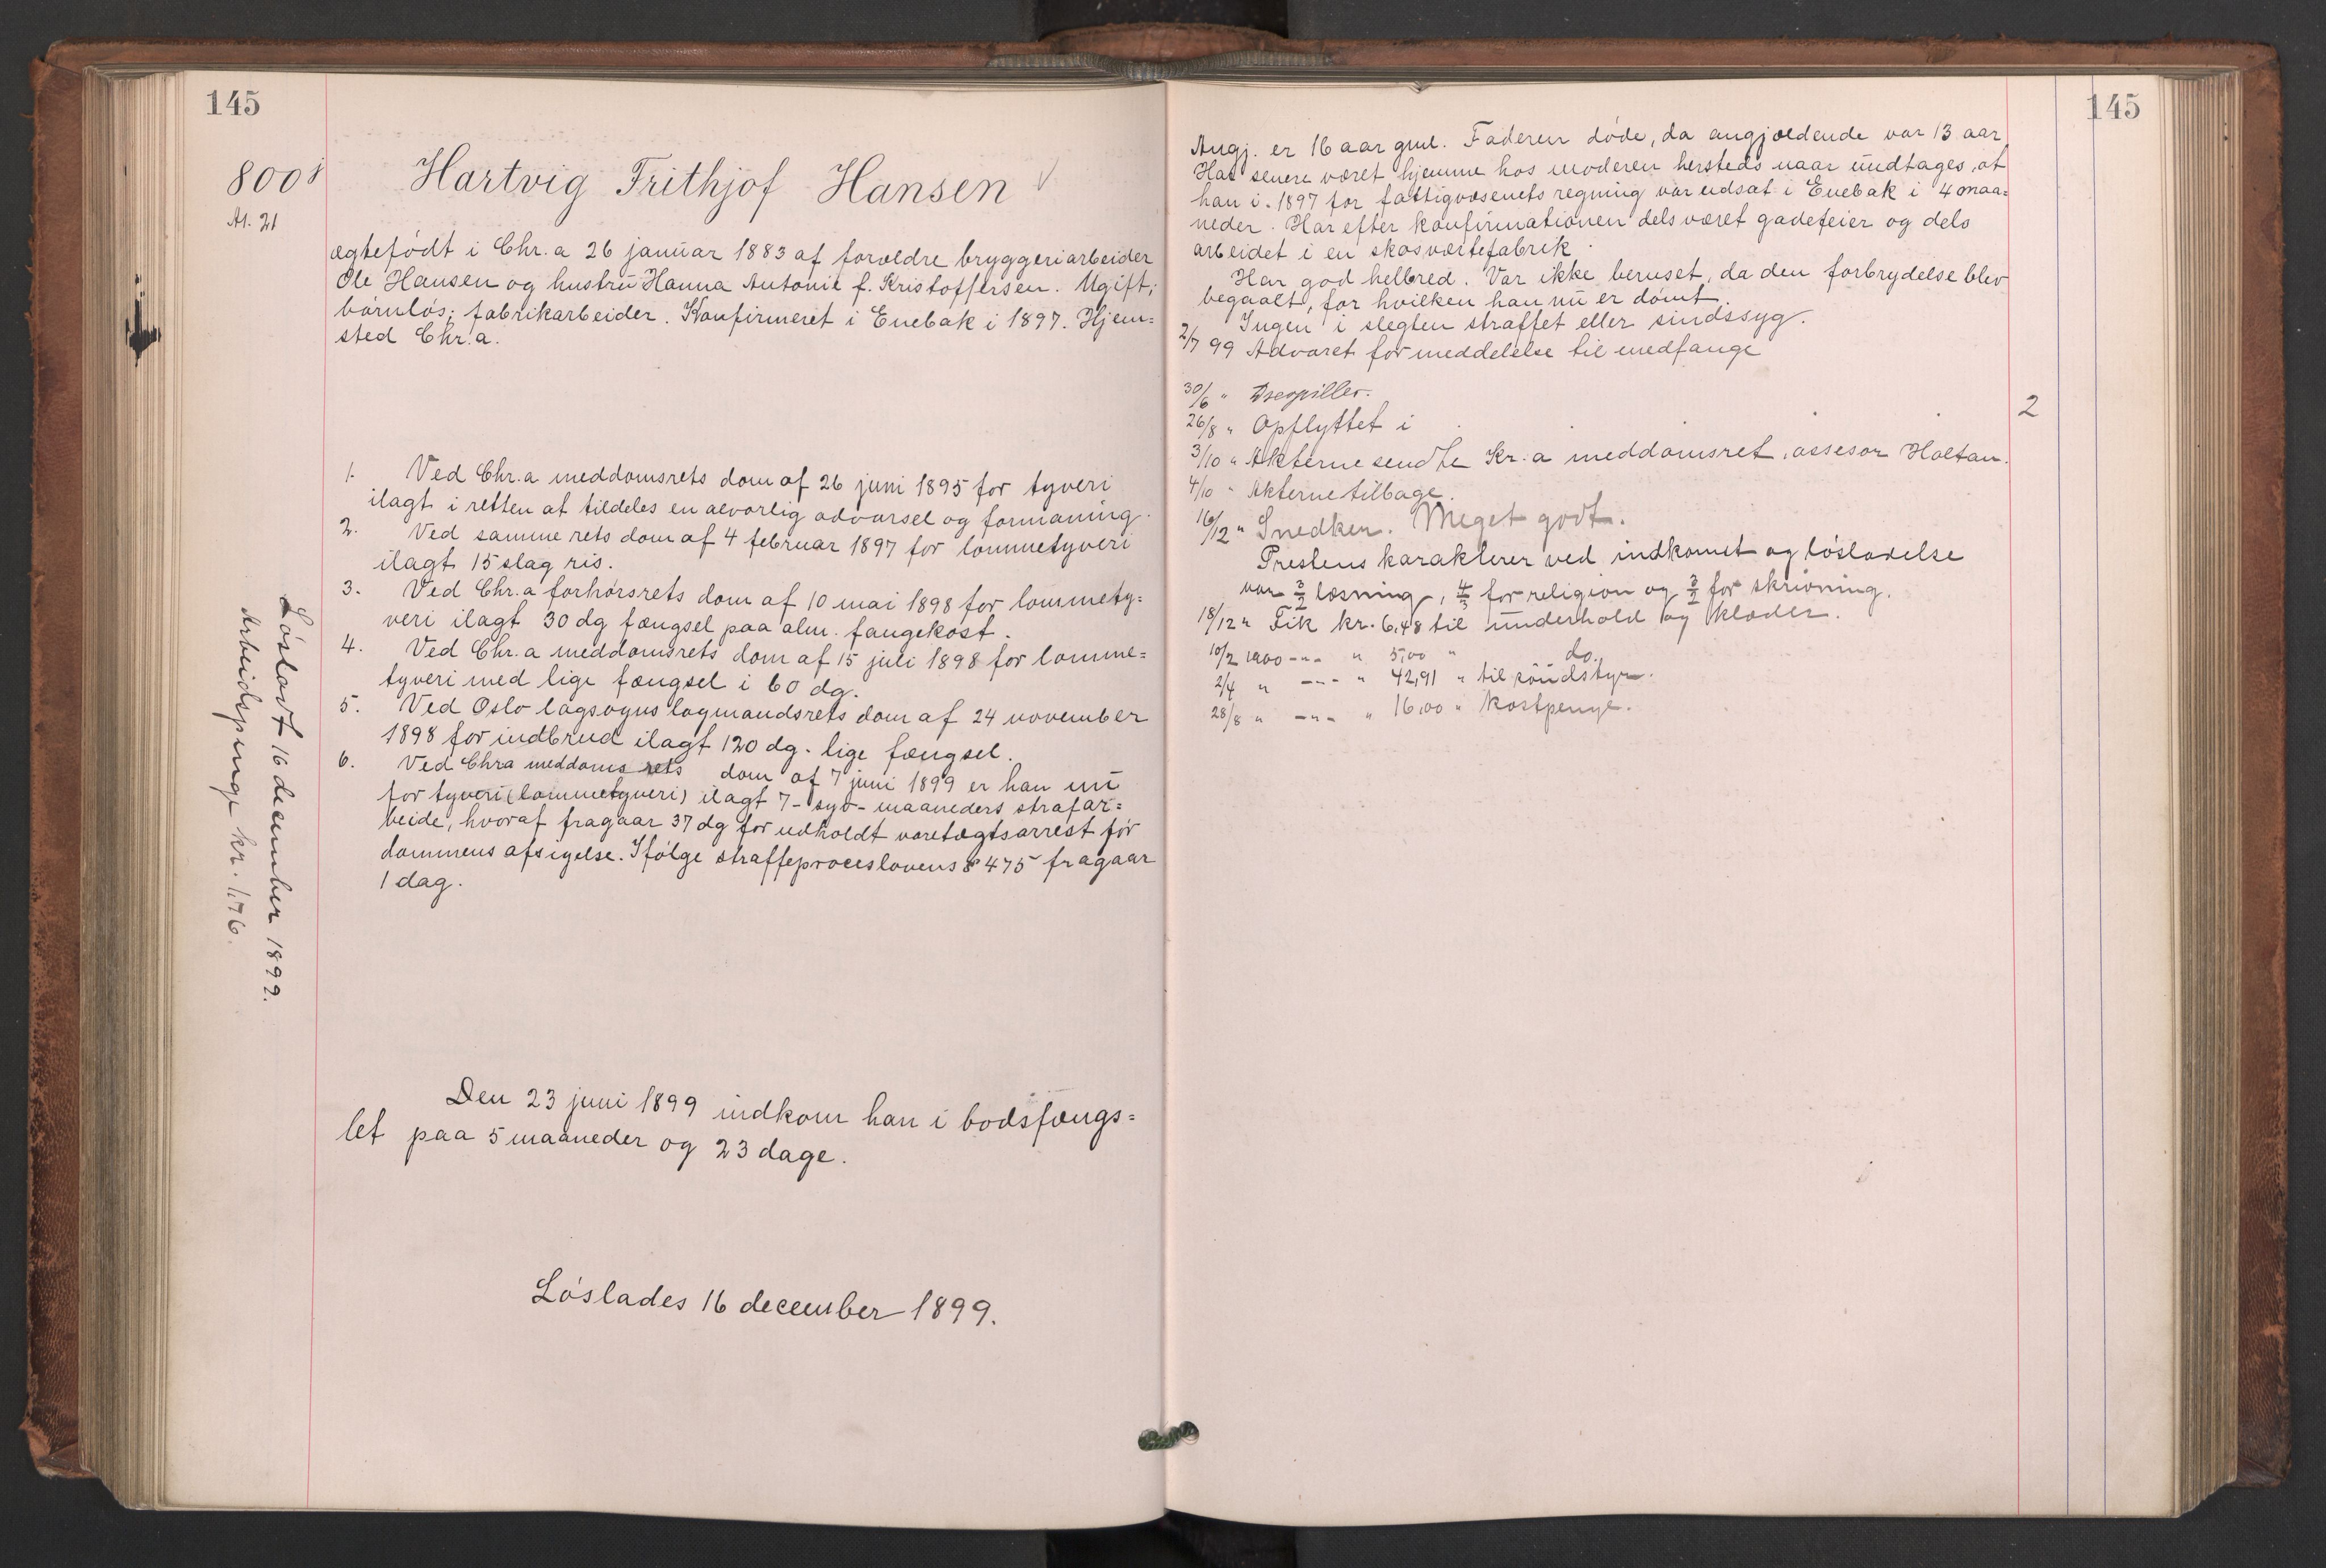 145
8001
At. 21
Hartvig Frithjof Hansen
ægtefødt i Chr.a 26 januar 1883 af forældre bryggeriarbeider
Ole Hansen og hustru Hanna Antonie f. Kristoffersen. Ugift;
barnløs; fabrikarbeider. Konfirmeret i Enebak i 1897. Hjem=
sted Chr.a.
1. Ved Chr.a meddomsrets dom af 26 juni 1895 for tyveri
ilagt i retten at tildeles en alvorlig advarsel og formaning.
2. Ved samme rets dom af 4 februar 1897 for lommetyveri
ilagt 15 slag ris.
3. Ved Chr.a forhørsrets dom af 10 mai 1898 for lommety=
veri ilagt 30 dg fængsel paa alm. fangekost.
4. Ved Chr.a meddomsrets dom af 15 juli 1898 for lomme=
tyveri med lige fængsel i 60 dg.
5. Ved Oslo lagsogns lagmandsrets dom af 24 november
1898 for indbrud ilagt 120 dg. lige fængsel.
6. Ved Chra meddomsrets dom af 7 juni 1899 er han nu
for tyveri (lommetyveri) ilagt 7 - syv - maaneders strafar=
beide, hvoraf fragaar 37 dg for udholdt varetægtsarrest før
dommens afsigelse. Ifølge straffeproceslovens § 475 fragaar
1 dag.
Løsladt 16 december 1899.
Arbeidspenge kr. 1,76.
Den 23 juni 1899 indkom han i bodsfængs=
let paa 5 maaneder og 23 dage.
Løslades 16 december 1899.
145
Angj. er 16 aar gml. Faderen døde, da angjældende var 13 aar
Har senere været hjemme hos moderen hersteds naar undtages, at
han i 1897 for fattigvæsenets regning var udsat i Enebak i 4 maa=
neder. Har efter konfirmationen dels været gadefeier og dels
arbeidet i en skosværtefabrik.
Har god helbred. Var ikke beruset, da den forbrydelse blev
begaaet, for hvilken han nu er dømt.
Ingen i slegten straffet eller sindssyg.
2/7 99 Advaret for meddelelse til medfange
30/6 "
26/8 " Opflyttet i 2
3/10 " Akterne sendte Kr.a meddomsret, assesor Holtan.
4/10 " Akterne tilbage.
16/12 " Snedker. Meget godt.
Prestens karakterer ved indkomst og løsladelse
var 3/2 læsning, 4/3 for religion og 3/2 for skrivning.
18/12 " Fik kr. 6,48 til underhold og klæder.
10/2 1900 -"- " 5,00 " do.
2/4 " -"- " 42,91 " til
28/8 " -"- " 16,00 " Kostpenge.